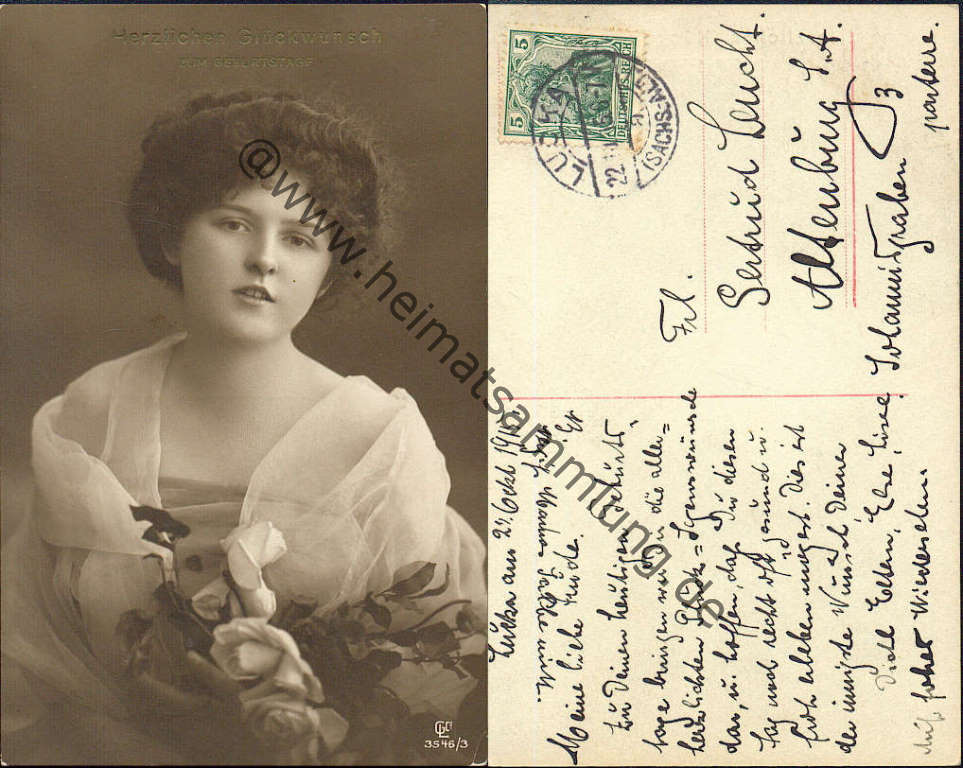 Herzlichen Glückwunsch
ZUM GEBURTSTAGE
3546/3
@www.heimatsammlung.de
5 5
DEUTSCHES REICH
LUCKA
22
(SACHS.-ALT.)
Frl.
Gertrud Leucht.
Altenburg S.A.
Johannisgraben 3
partere.
Lucka am 21. Okt. 1911
Meine liebe Trude.
Zu Deinem heutigen Geburts-
tage bringen wir Dir die aller-
herzlichsten Glück= Segenswünsche
dar, u. hoffen, daß Du diesen
Tag noch recht oft gesund u.
froh erleben magst. Dies ist
der innigste Wunsch Deiner
Eltern,
Auf frohes Wiedersehen.